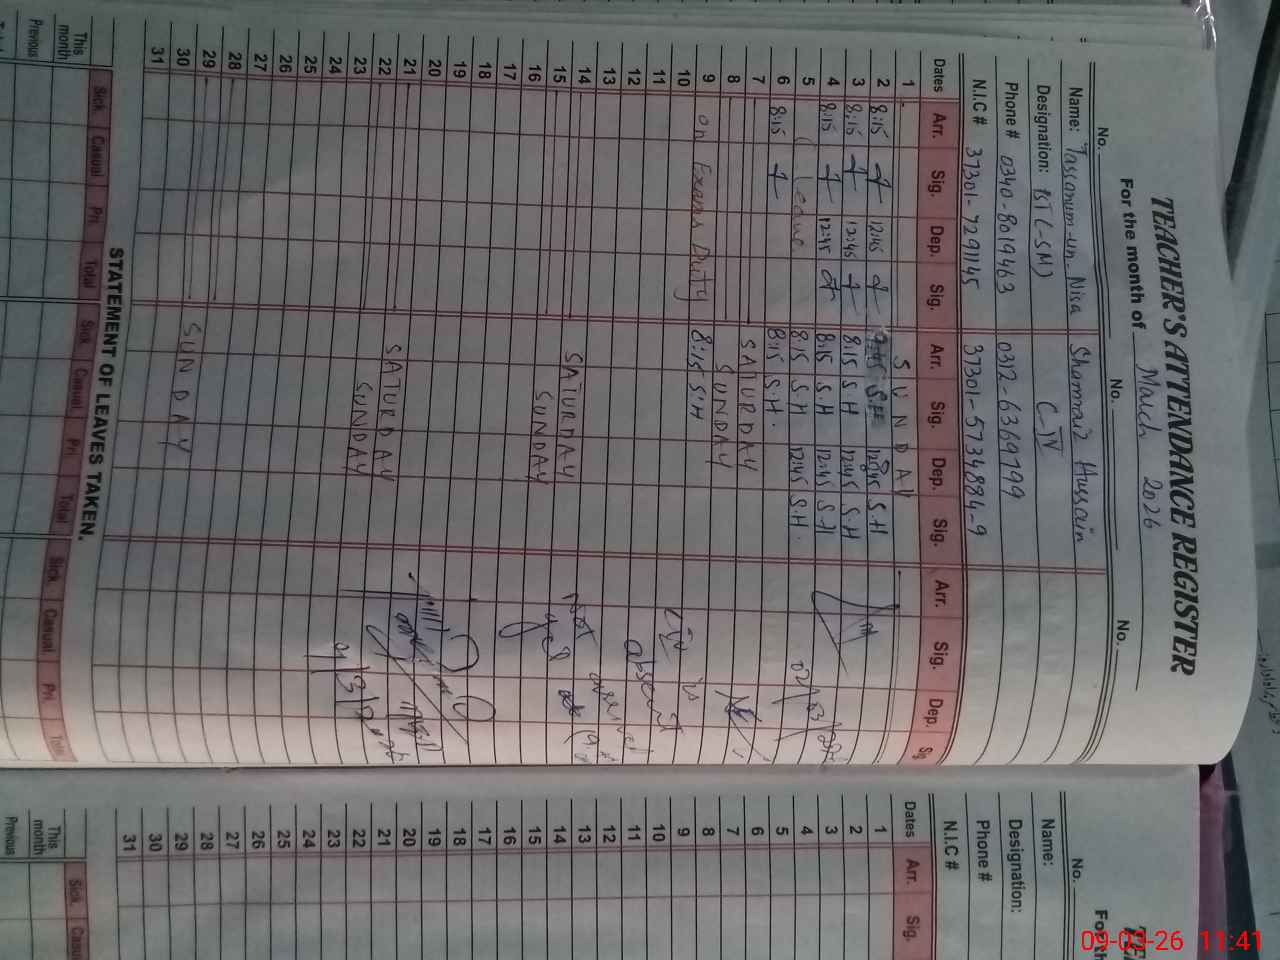 TEACHER'S ATTENDANCE REGISTER
For the month of March 2026
No. No. No.
Name: Tassanum-un-Nisa Shamraiz Hussain
Designation: EST (-SM) C-IV
Phone # 0340-8019463 0312-6369799
N.I.C # 37301-7291145 37301-5734884-9
Dates Arr. Sig. Dep. Sig. Arr. Sig. Dep. Sig. Arr. Sig. Dep.
1 SUNDAY
2 8:15 12:45 S.H 12:45 S.H
3 8:15 12:45 8:15 S.H 12:45 S.H
4 8:15 12:45 8:15 S.H 12:45 S.H
5 Leave 8:15 S.H 12:45 S.H.
6 8:15 8:15 S.H.
7 SATURDAY
8 SUNDAY
9 on Exams Duty 8:15 S.H
10
11
12
13
14 SATURDAY
15 SUNDAY
16
17
18
19
20
21 SATURDAY
22 SUNDAY
23
24
25
26
27
28
29 SUNDAY
30
31
C-IV is
absent
Not arrived
yet
STATEMENT OF LEAVES TAKEN.
Sick Casual Pri Total Sick Casual Pri Total Sick Casual Pri Total
This month
Previous
TE
For th
No.
Name:
Designation:
Phone #
N.I.C #
Dates Arr. Sig.
1
2
3
4
5
6
7
8
9
10
11
12
13
14
15
16
17
18
19
20
21
22
23
24
25
26
27
28
29
30
31
Sick Casua
This month
Previous
09-03-26 11:41